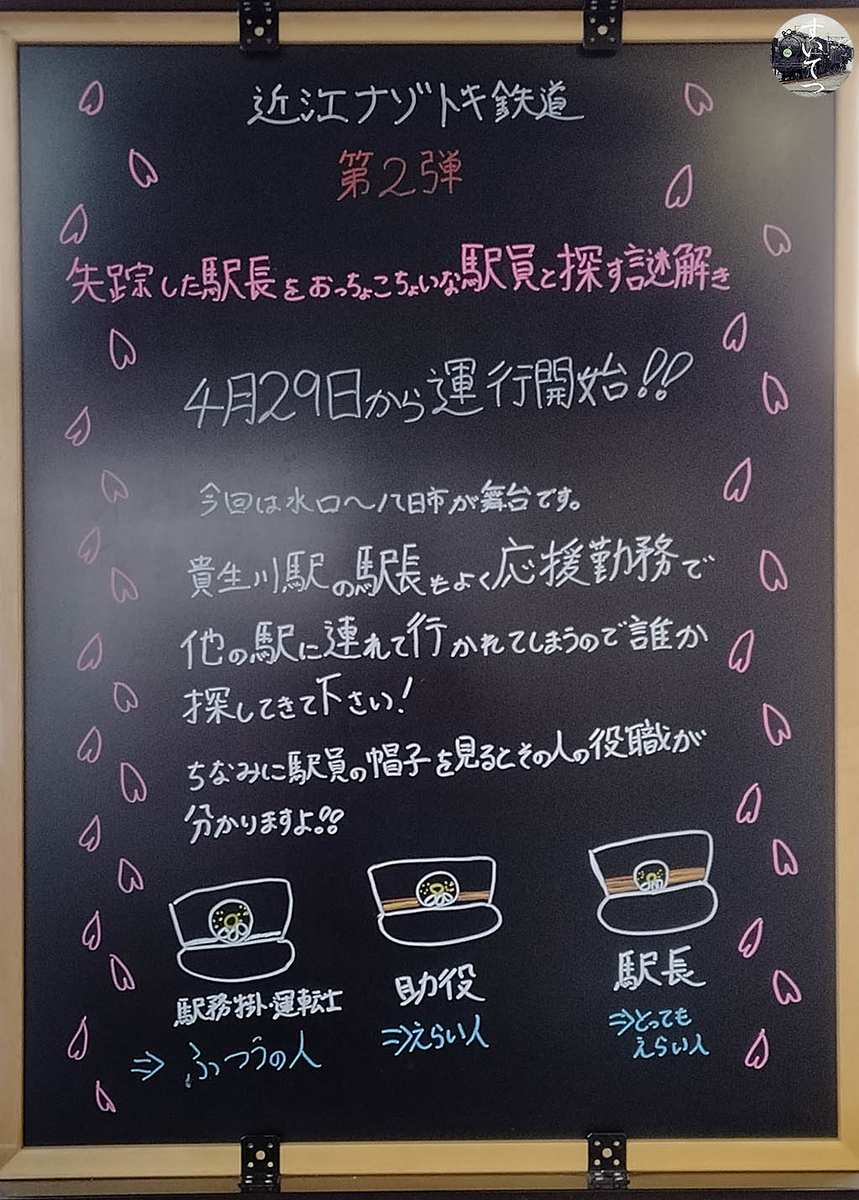 すいてつ
近江ナゾトキ鉄道
第2弾
失踪した駅長をおっちょこちょいな駅員と探す謎解き
4月29日から運行開始!!
今回は水口～八日市が舞台です。
貴生川駅の駅長もよく応援勤務で
他の駅に連れて行かれてしまうので誰か
探してきて下さい!
ちなみに駅員の帽子を見るとその人の役職が
分かりますよ!!
駅務掛・運転士
⇒ふっつうの人
助役
⇒えらい人
駅長
⇒とっても
えらい人